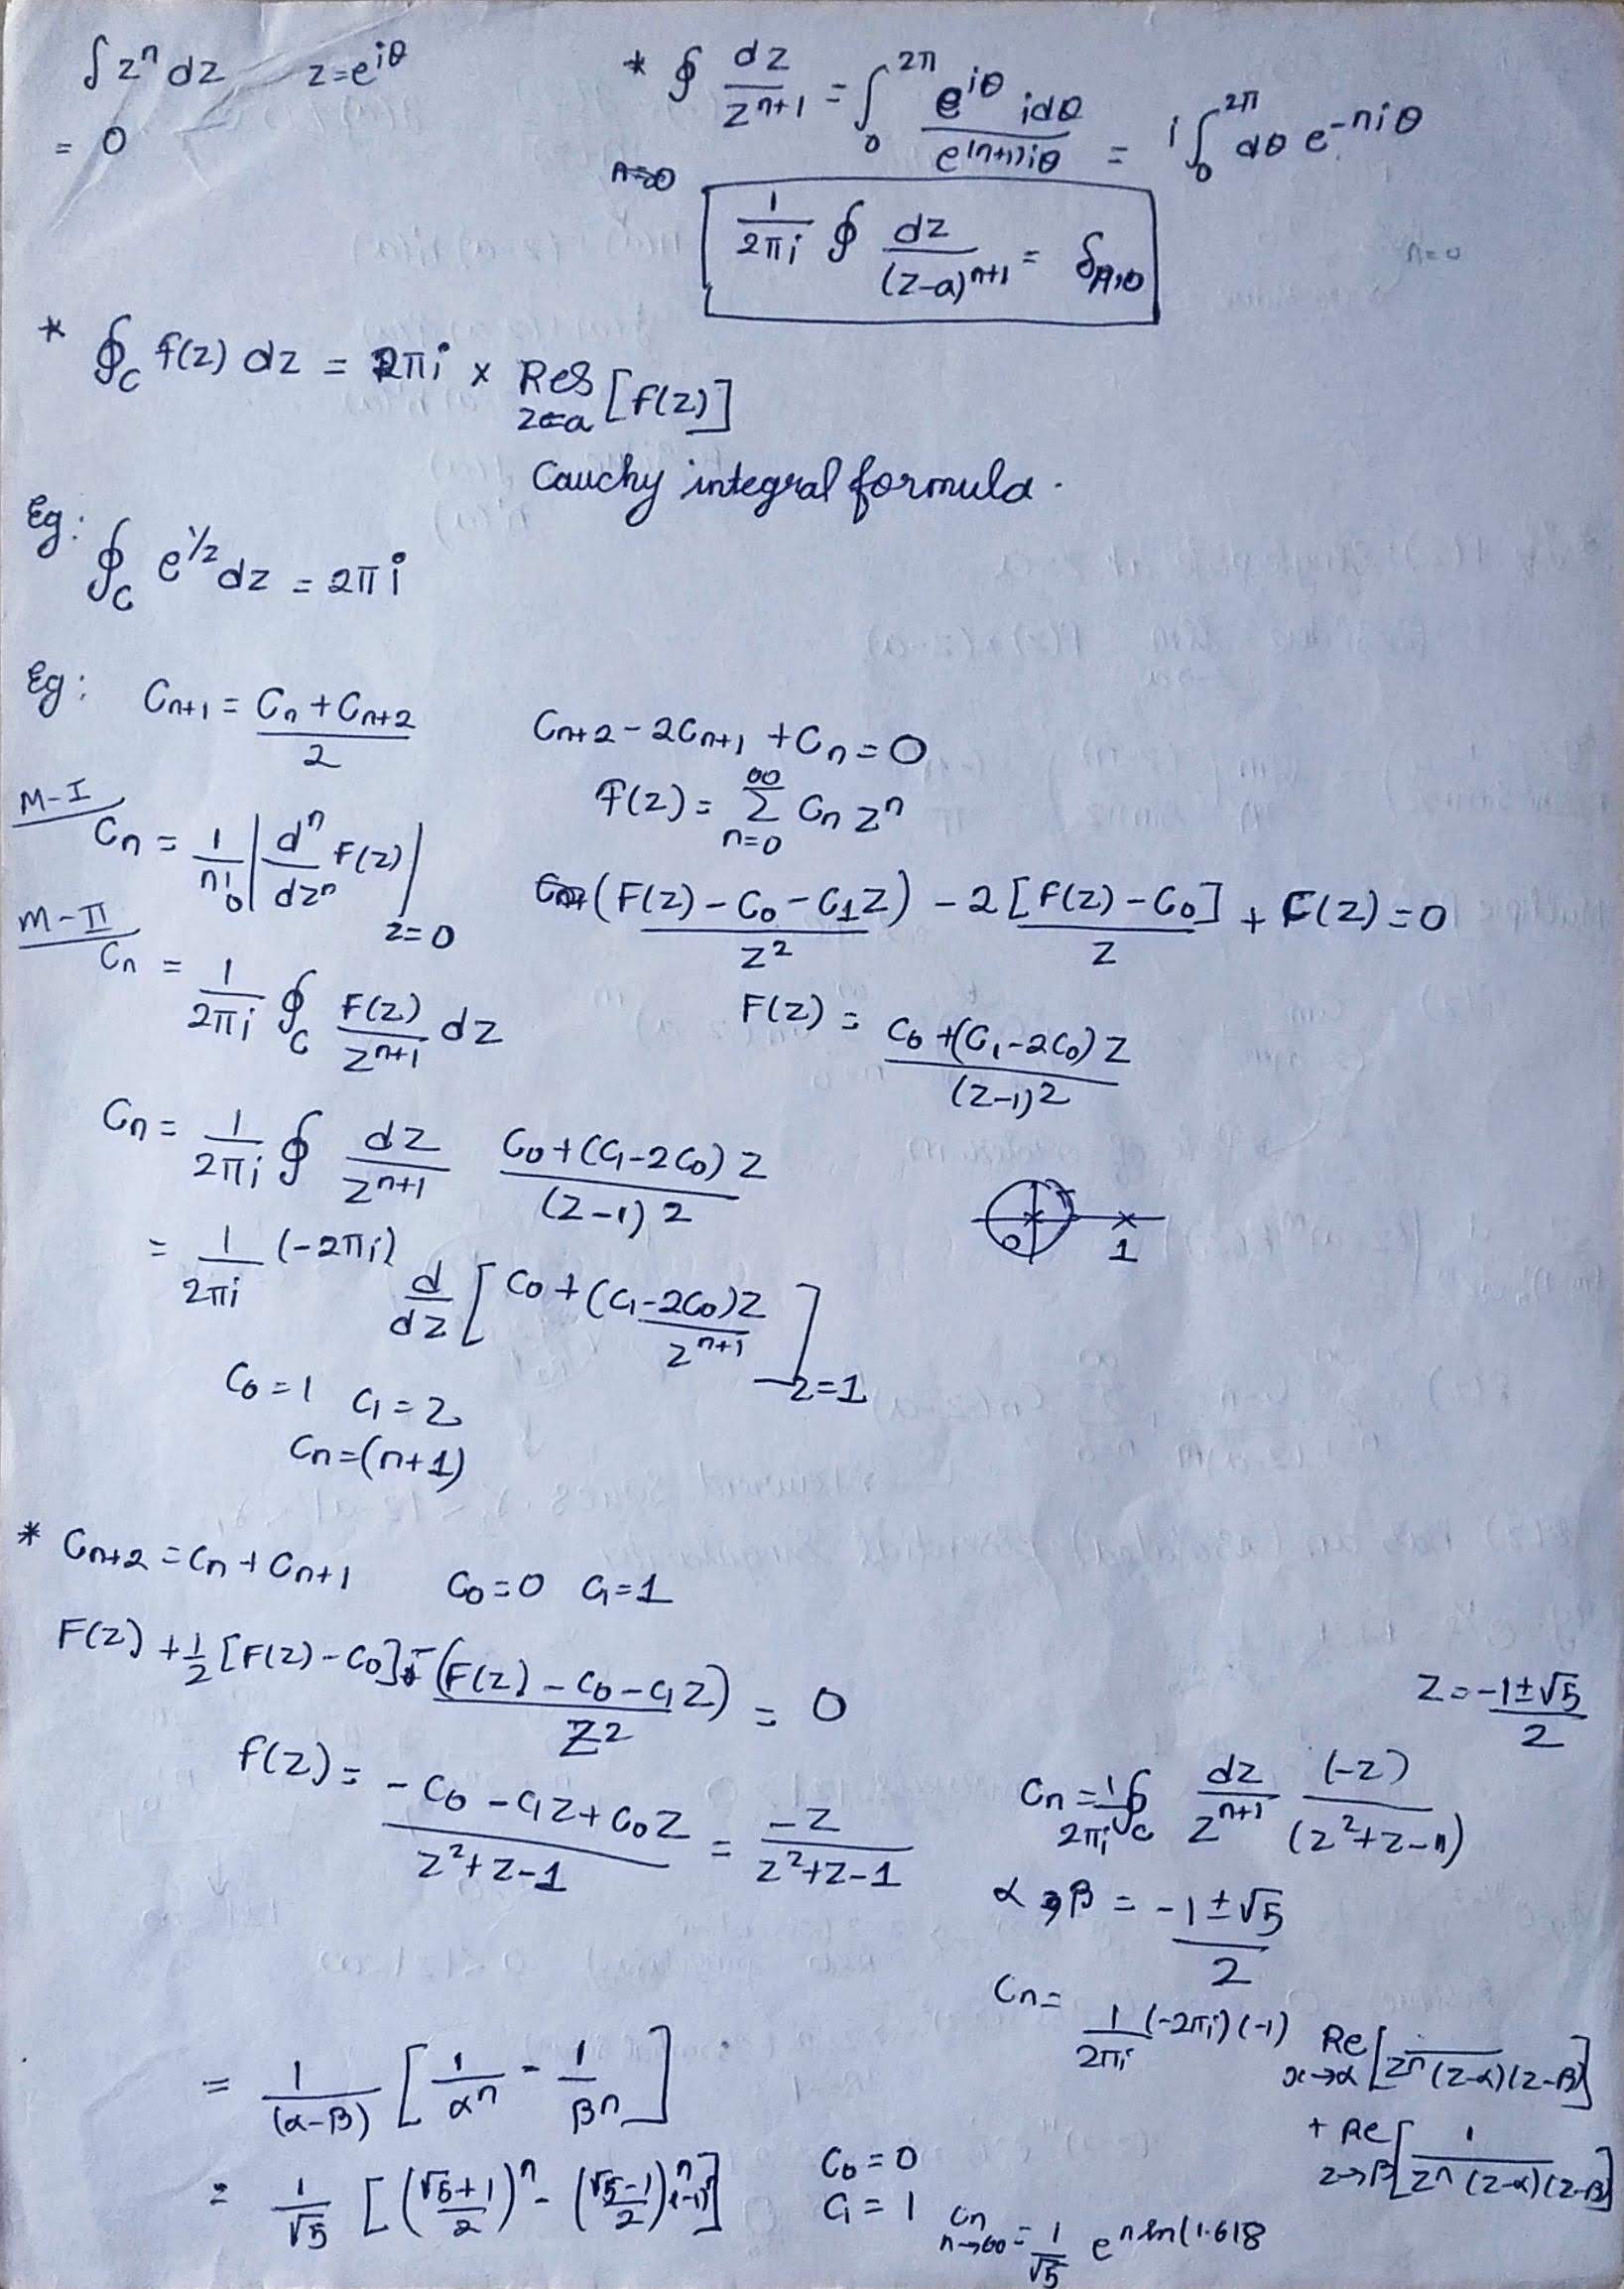 ∫ zⁿ dz   z=e^{iθ}
= 0
* ∮ dz/z^{n+1} = ∫₀^{2π} e^{iθ} idθ / e^{(n+1)iθ} = i∫₀^{2π} dθ e^{-niθ}
1/(2πi) ∮ dz/(z-a)^{n+1} = δ_{n,0}
* ∮_C f(z) dz = 2πi × Res_{z=a} [f(z)]
Cauchy integral formula.
Eg: ∮_C e^{1/z} dz = 2πi
Eg: C_{n+1} = (C_n + C_{n+2})/2   C_{n+2} - 2C_{n+1} + C_n = 0
f(z) = Σ_{n=0}^{∞} C_n zⁿ
M-I
C_n = 1/n! | dⁿ/dzⁿ F(z) |_{z=0}
(F(z) - C₀ - C₁z)/z² - 2[F(z) - C₀]/z + F(z) = 0
M-II
C_n = 1/(2πi) ∮_C F(z)/z^{n+1} dz
F(z) = (C₀ + (C₁-2C₀)z)/(z-1)²
C_n = 1/(2πi) ∮ dz/z^{n+1} (C₀ + (C₁-2C₀)z)/(z-1)²
0   1
= 1/(2πi) (-2πi) d/dz [C₀ + (C₁-2C₀)z / z^{n+1}]_{z=1}
C₀ = 1   C₁ = 2
C_n = (n+1)
* C_{n+2} = C_n + C_{n+1}   C₀ = 0   C₁ = 1
F(z) + 1/z [F(z) - C₀] - (F(z) - C₀ - C₁z)/z² = 0
z = (-1±√5)/2
f(z) = (-C₀ - C₁z + C₀z)/(z²+z-1) = -z/(z²+z-1)
C_n = 1/(2πi) ∮_C dz/z^{n+1} (-z)/(z²+z-1)
α, β = (-1±√5)/2
C_n = 1/(2πi) (-2πi)(-1) Re_{x→α} [1/(zⁿ(z-α)(z-β))]
+ Re_{z→β} [1/(zⁿ(z-α)(z-β))]
= 1/(α-β) [1/αⁿ - 1/βⁿ]
= 1/√5 [((√5+1)/2)ⁿ - ((√5-1)/2)ⁿ(-1)ⁿ]
C₀ = 0
C₁ = 1
C_n _{n→∞} = 1/√5 e^{n ln(1.618}